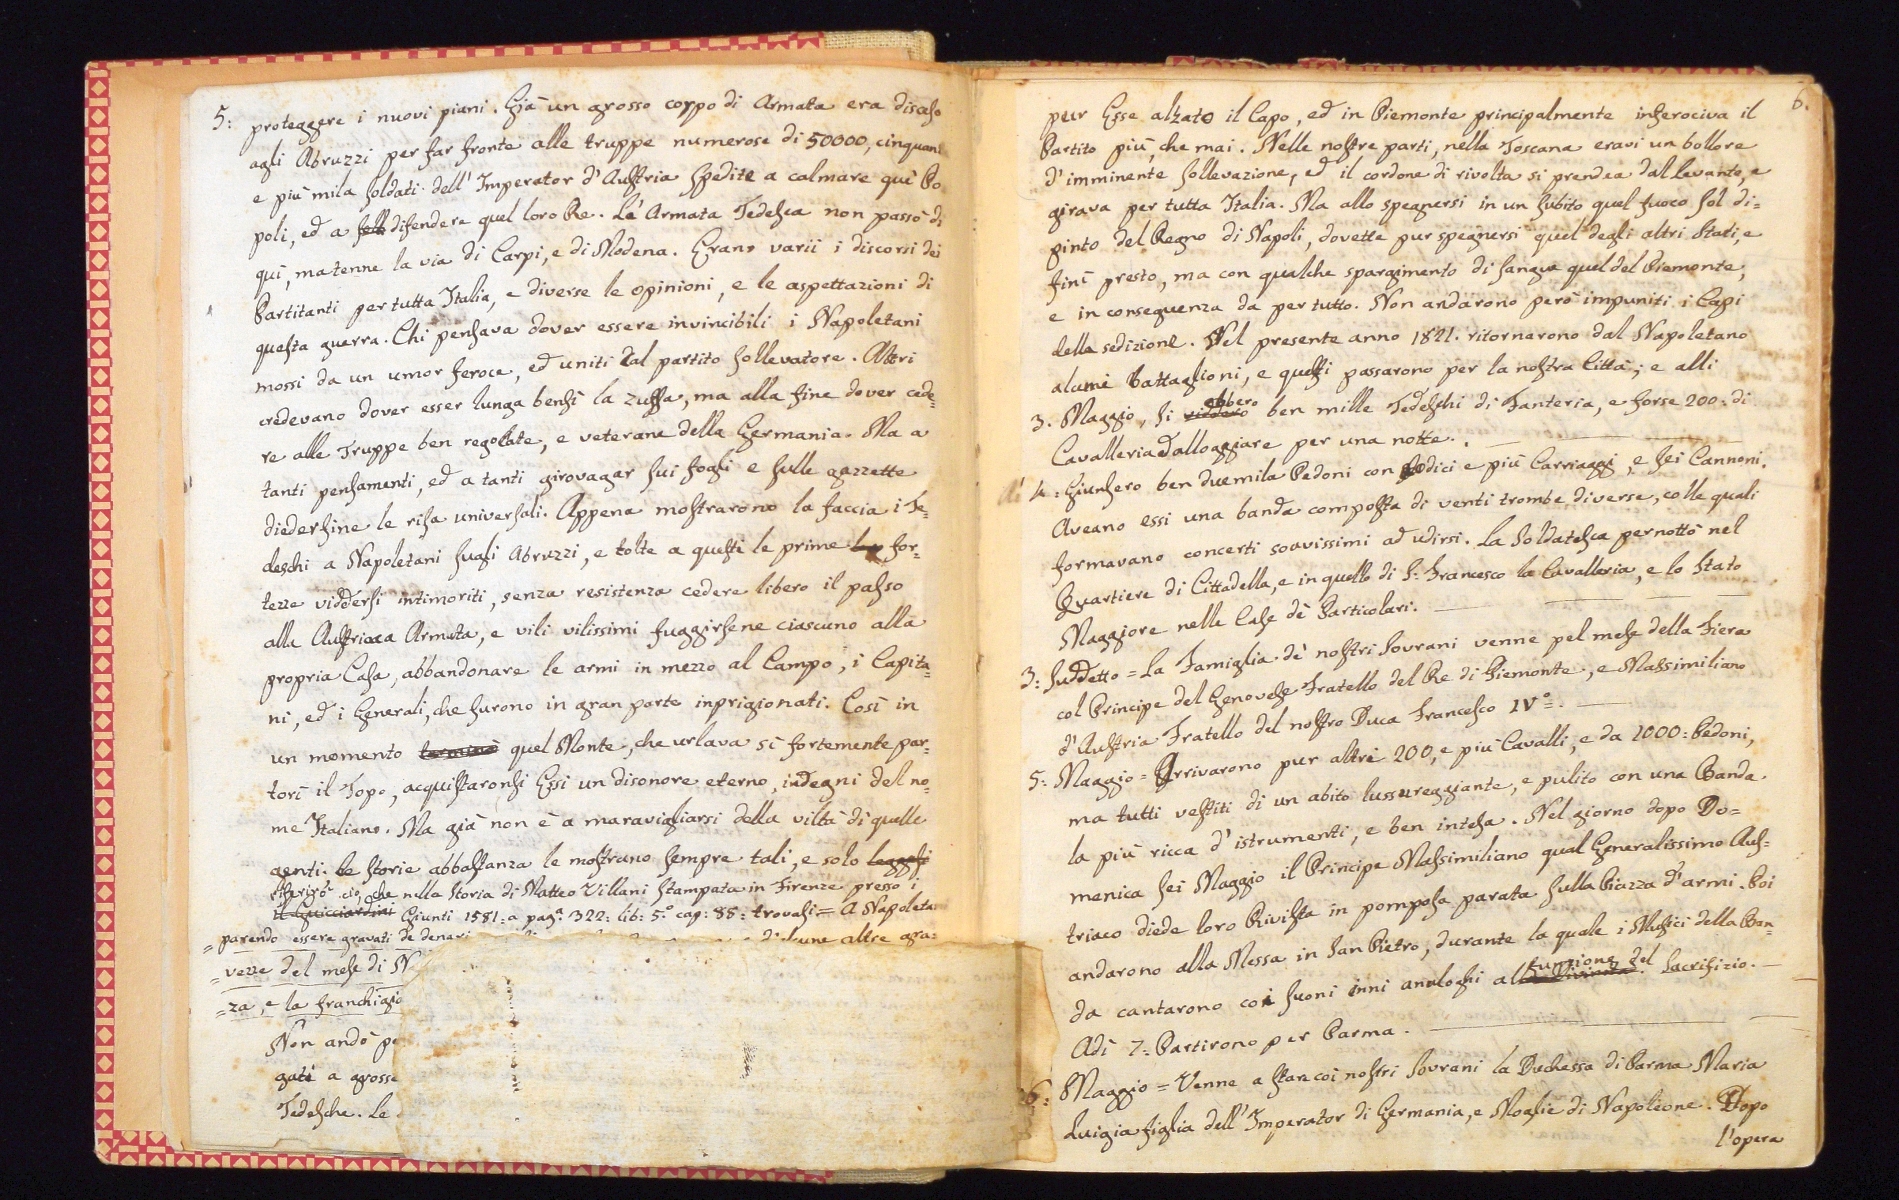 5: proteggere i nuovi piani. Già un grosso corpo di Armata era disceso
agli Abruzzi per far fronte alle truppe numerose di 50000, cinquant
e più mila soldati dell'Imperator d'Austria spedite a calmare què Po
poli, ed a difendere quel loro Re. Le Armata Tedesca non passò di
quì, ma tenne la via di Carpi, e di Modena. Erano varii i discorsi dei
Partitanti per tutta Italia, e diverse le opinioni, e le aspettazioni di
questa guerra. Chi pensava dover essere invincibili i Napoletani
mossi da un umor feroce, ed uniti dal partito sollevatore. Altri
credevano dover esser lunga bensì la zuffa, ma alla fine dover cede=
re alle Truppe ben regolate, e veterane della Germania. Ma a
tanti pensamenti, ed a tanti girovagar sui fogli e sulle gazzette
dieder fine le risa universali. Appena mostrarono la faccia i Te=
deschi a Napoletani sugli Abruzzi, e tolte a questi le prime for=
tezze viddersi intimoriti, senza resistenza cedere libero il passo
alla Austriaca Armata, e vili vilissimi fuggirsene ciascuno alla
propria Casa, abbandonare le armi in mezzo al Campo, i Capita=
ni, ed i Generali, che furono in gran parte inprigionati. Così in
un momento terminò quel Monte, che urlava sì fortemente par=
torì il Topo, acquistaronsi Essi un disonore eterno, indegni del no=
me Italiano. Ma già non è a maravigliarsi della viltà di quelle
genti. Le storie abbastanza le mostrano sempre tali, e solo leggasi
riferirò ciò, che nella Storia di Matteo Villani stampata in Firenze presso i
il Guicciardini Giunti 1581: a pagª 322: lib: 5.º cap: 88: trovasi = A Napoletani
= parendo essere gravati de denari alcune altre gra=
= vezze del mese di
= za, e la franchigia
Non andò
gati a grosse
Tedesche. Le
6.
pur Esse alzato il Capo, ed in Piemonte principalmente inferociva il
Partito più, che mai. Nelle nostre parti, nella Toscana eravi un bollore
d'imminente sollevazione, ed il cordone di rivolta si prendea dal levante, e
girava per tutta Italia. Ma allo spegnersi in un subito quel fuoco sol di=
pinto del Regno di Napoli, dovette pur spegnersi quel degli altri Stati, e
finì presto, ma con qualche spargimento di sangue quel del Piemonte,
e in conseguenza da per tutto. Non andarono però impuniti i Capi
della sedizione. Nel presente anno 1821. ritornarono dal Napoletano
alcuni Battaglioni, e questi passarono per la nostra Città; e alli
3. Maggio, si viddero ebbero ben mille Tedeschi di Fanteria, e forse 200: di
Cavalleria d'alloggiare per una notte.
dì 4: Giunsero ben duemila Pedoni con sedici e più Carriaggi, e sei Cannoni.
Aveano essi una banda composta di venti trombe diverse, colle quali
formavano concerti soavissimi ad udirsi. La Soldatesca pernottò nel
Quartiere di Cittadella, e in quello di S: Francesco la Cavalleria, e lo Stato
Maggiore nelle Case dè Particolari.
3: Suddetto = La Famiglia dè nostri Sovrani venne pel mese della Fiera
col Principe del Genovese Fratello del Re di Piemonte, e Massimiliano
d'Austria Fratello del nostro Duca Francesco IVº.
5: Maggio = Arrivarono pur altri 200, e più Cavalli, e da 1000: Pedoni,
ma tutti vestiti di un abito lussureggiante, e pulito con una Banda
la più ricca d'istrumenti, e ben intesa. Nel giorno dopo Do=
menica sei Maggio il Principe Massimiliano qual Generalissimo Aus=
triaco diede loro Rivista in pomposa parata sulla Piazza d'armi. Poi
andarono alla Messa in San Pietro, durante la quale i Musici della Ban=
da cantarono coi suoni inni analoghi alla funzione del Sacrifizio.
Adì 7: Partirono per Parma.
6: Maggio = Venne a star coi nostri Sovrani la Duchessa di Parma Maria
Luigia figlia dell'Imperator di Germania, e Moglie di Napoleone. Dopo
l'opera